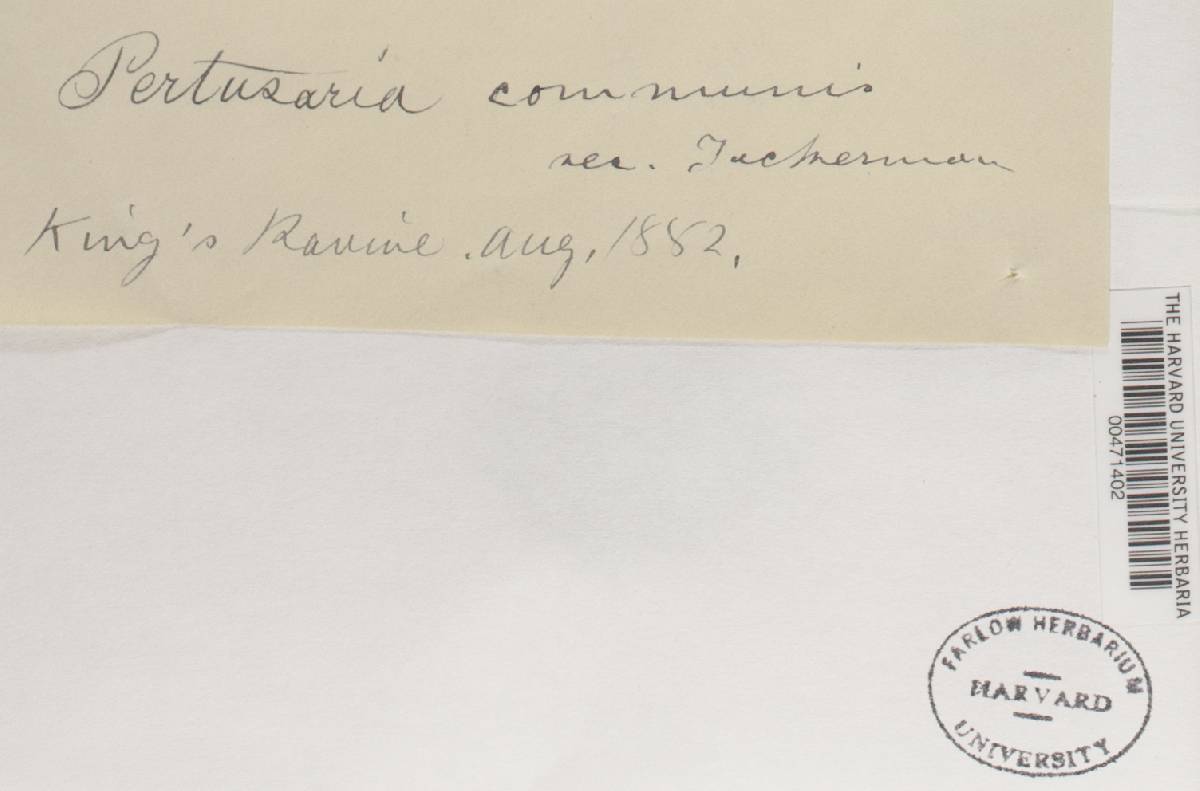 Pertusaria communis
sec. Tuckerman
King's Ravine. Aug. 1882.
THE HARVARD UNIVERSITY HERBARIA
00471402
FARLOW HERBARIUM
HARVARD
UNIVERSITY